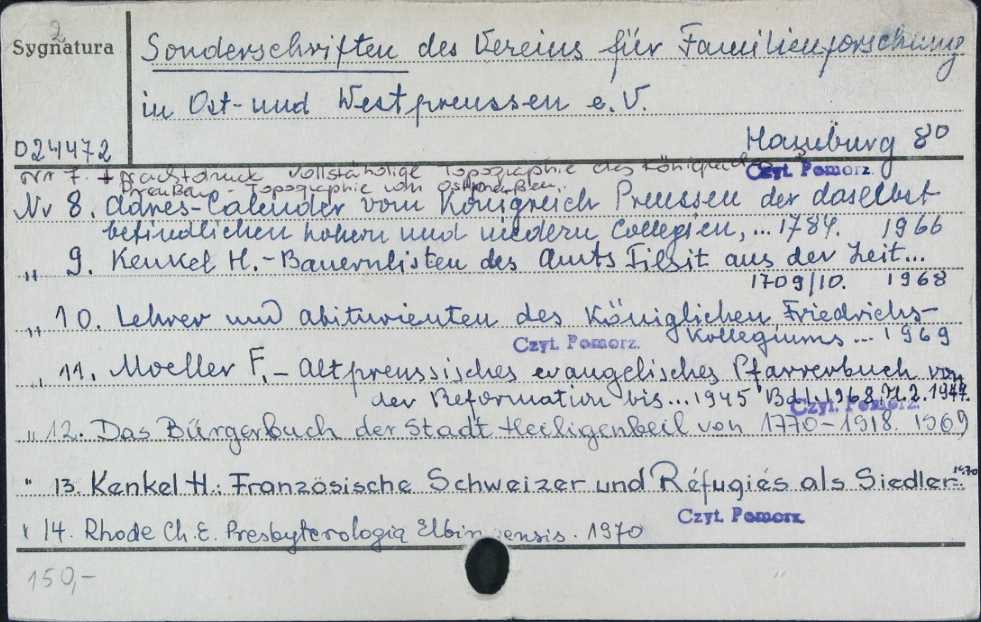 2
Sygnatura
Sonderschriften des Vereins für Familienforschung
in Ost- und Westpreussen e.V.
D24472
Hamburg 8°
Nr 7. + Nachdruck Vollständige Topographie des Königreichs
Czyt. Pomorz.
Preußen - Topographie von Ostpreußen.
Nr 8. Adres-Calender vom Königreich Preussen der daselbst
befindlichen hohern und niedern Collegien,... 1784. 1966
„ 9. Kenkel H.- Bauernlisten des Amts Tilsit aus der Zeit...
1709/10. 1968
„ 10. Lehrer und Abiturienten des Königlichen Friedrichs-
Czyt. Pomorz.
Kollegiums... 1969
„ 11. Moeller F. - Altpreussisches evangelisches Pfarrerbuch von
der Reformation bis... 1945 Bd 1. 1968 H.2. 1977.
Czyt. Pomorz.
„ 12. Das Bürgerbuch der Stadt Heiligenbeil von 1770-1918. 1969
" 13. Kenkel H.: Französische Schweizer und Réfugiés als Siedler... 1970
Czyt. Pomorz.
" 14. Rhode Ch. E. Presbyterologia Elbingensis. 1970
150,-